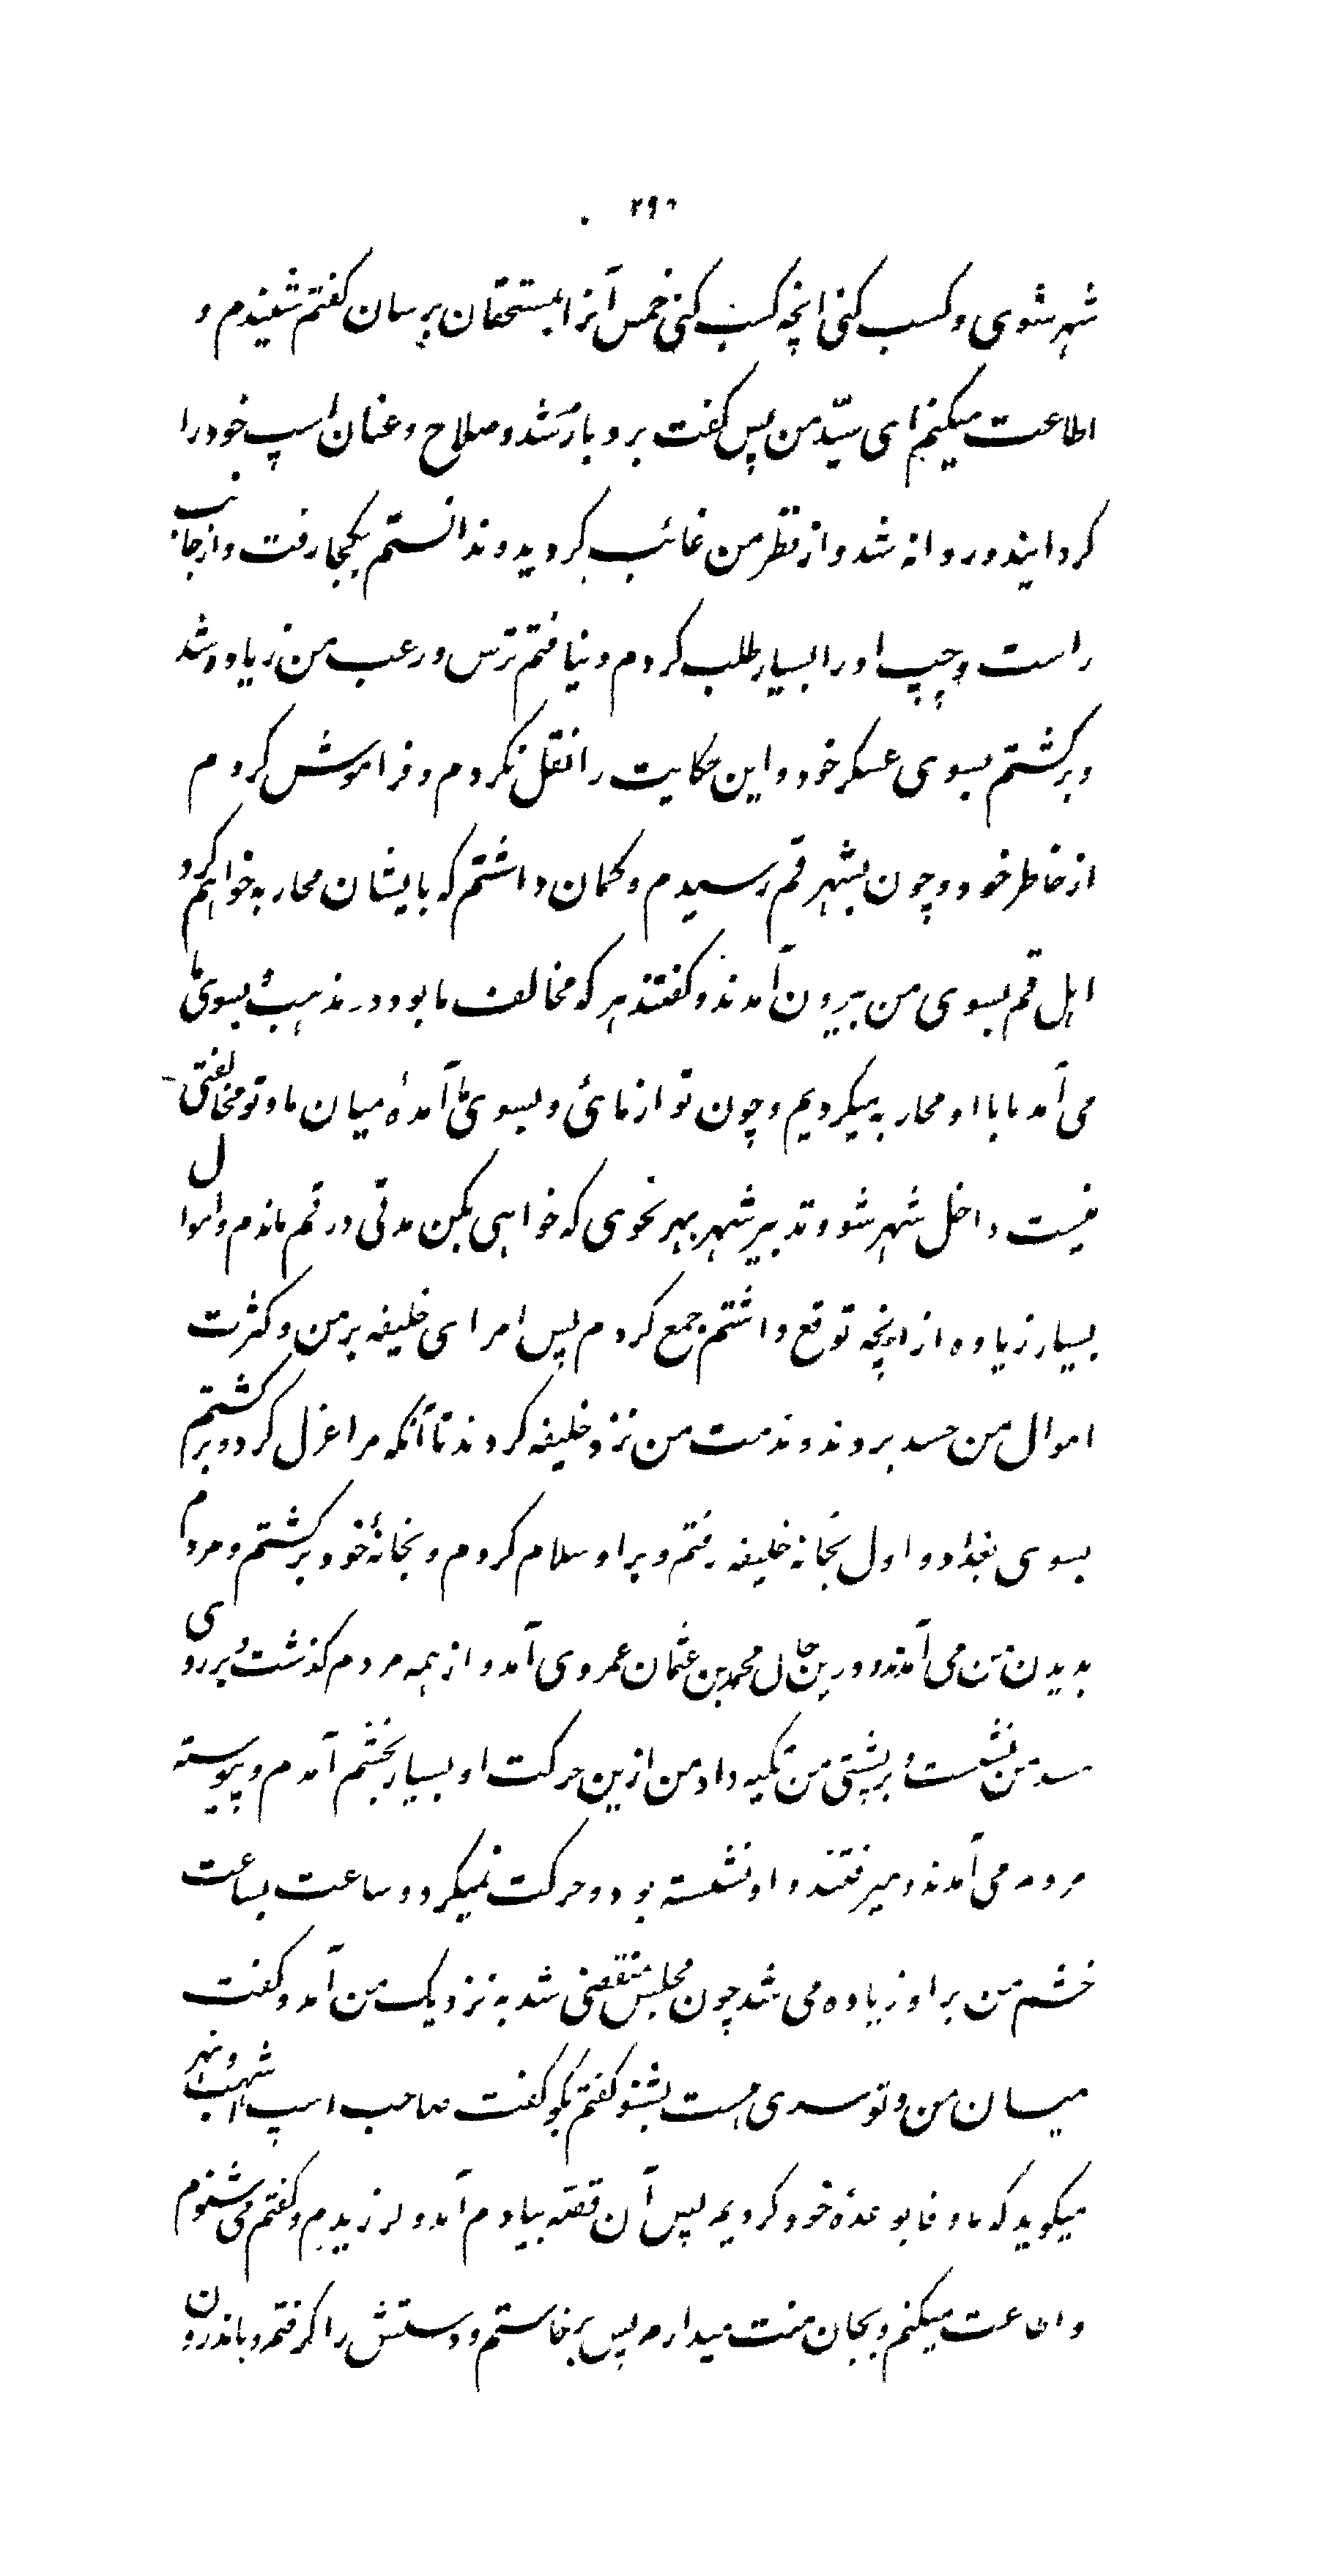 ۲۹۰
شهر شوی و کسب کنی انچه کسب کنی خمس آنرا بمستحقان برسان کفتم شنیدم و
اطاعت میکنم ای سیّد من پس کفت برو با رشد و صلاح و عنان اسپ خود را
کردانید و روانه شد و از نظر من غائب کردید و ندانستم بکجا رفت و از جانب
راست و چپ او را بسیار طلب کردم و نیافتم ترس و رعب من زیاده شد
و برکشتم بسوی عسکر خود و این حکایت را نقل نکردم و فراموش کردم
از خاطر خود و چون بشهر قم رسیدم و کمان داشتم که با یشان محاربه خواهم کرد
اهل قم بسوی من بیرون آمدند و کفتند هر که مخالف ما بود در مذهب بسوی ما
می آمد ما با او محاربه میکردیم و چون تو از مائی و بسوی ما آمدهٔ میان ما و تو مخالفتی
نیست داخل شهر شو و تدبیر شهر بهر نحوی که خواهی بکن مدتی در قم ماندم و اموال
بسیار زیاده از انچه توقع داشتم جمع کردم پس امرای خلیفه بر من و کثرت
اموال من حسد بردند و مذمت من نزد خلیفه کردند تا آنکه مرا عزل کرد و برکشتم
بسوی بغداد و اول بخانه خلیفه رفتم و بر او سلام کردم و بخانهٔ خود برکشتم و مردم
بدیدن من می آمدند و درین حال محمد بن عثمان عمروی آمد و از همه مردم کذشت و بر روی
مسند من نشست و بر پشتی من تکیه داد من ازین حرکت او بسیار بخشم آمدم و پیوسته
مردم می آمدند و میرفتند و او نشسته بود و حرکت نمیکرد و ساعت بساعت
خشم من بر او زیاده می شد چون مجلس منقضی شد به نزدیک من آمد و کفت
میان من و تو سری هست بشنو کفتم بکو کفت صاحب اسپ اشهب و نهر
میکوید که ما وفا بوعدهٔ خود کردیم پس آن قصّه بیادم آمد و لرزیدم و کفتم می شنوم
و اطاعت میکنم و بجان منت میدارم پس برخاستم و دستش را کرفتم و باندرون